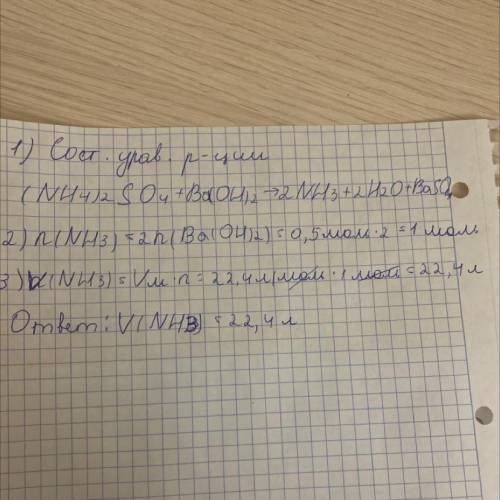 1) Сост. урав. р-ции
(NH4)2SO4+Ba(OH)2→2NH3+2H2O+BaSO4
2) n(NH3)=2n(Ba(OH)2)=0,5моль·2=1моль
3) V(NH3)=Vм·n=22,4л/моль·1моль=22,4л
Ответ: V(NH3)=22,4л